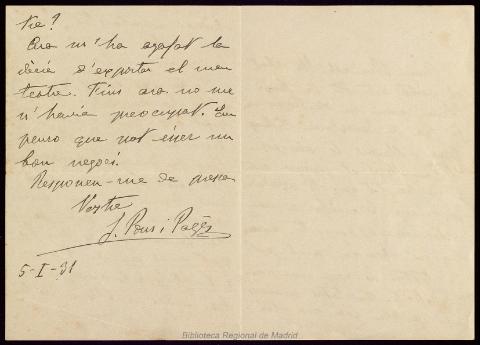 tre?
Ara m'ha agafat la
dèria d'exportar el meu
teatre. Fins ara no me
n'havia preocupat. Em
penso que pot ésser un
bon negoci.
Responeu-me de pressa
Vostre
J. Pous i Pagès
5-I-31
Biblioteca Regional de Madrid